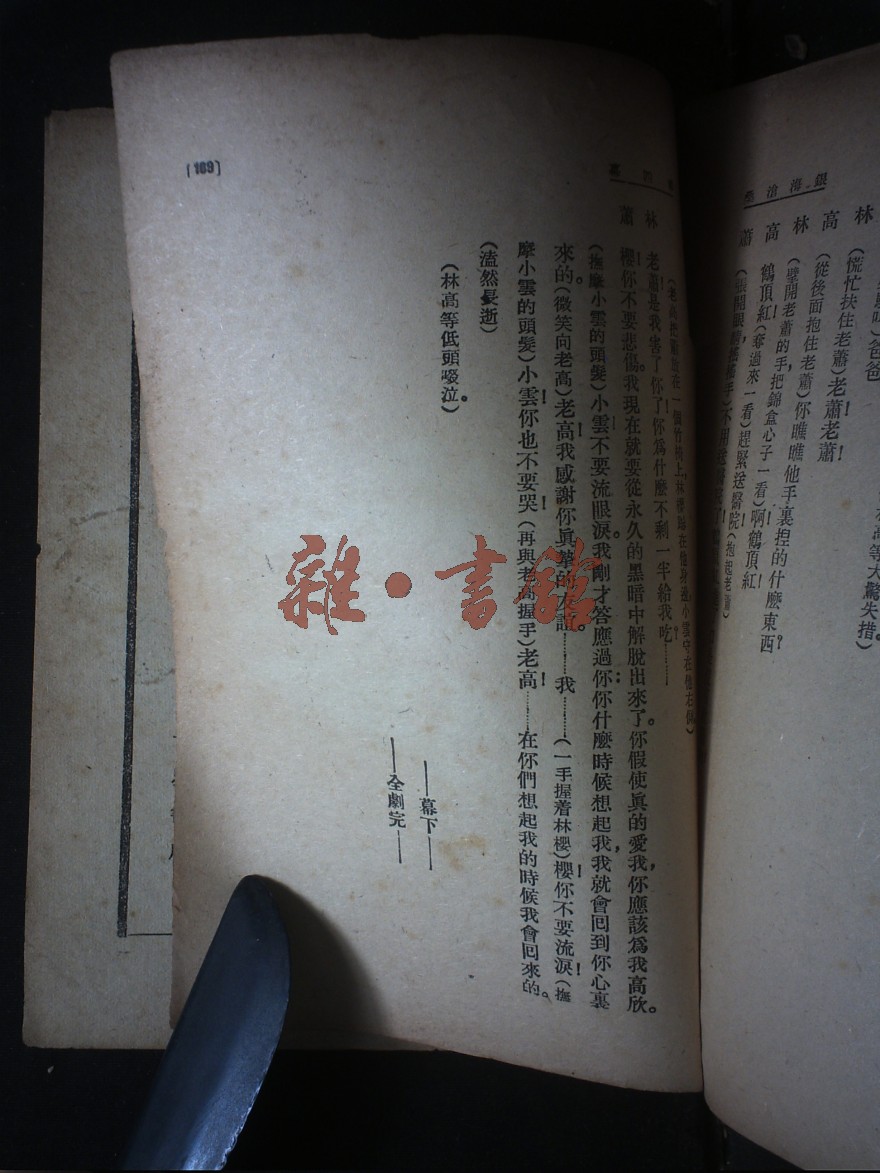 銀海滄桑
林
高 (慌忙扶住老蕭)老蕭!老蕭!
林 (從後面抱住老蕭)你瞧瞧他手裏揑的什麼東西?
高 (擘開老蕭的手,把錦盒心子一看)啊!鶴頂紅!
鶴頂紅!(奪過來一看)趕緊送醫院!(抱起老蕭)
蕭
林 老蕭!是我害了你了!你為什麼不剩一半給我吃?………
蕭 櫻!你不要悲傷。我現在就要從永久的黑暗中解脫出來了。你假使眞的愛我,你應該為我高欣。
(撫摩小雲的頭髮)小雲!不要流眼淚。我剛才答應過你:你什麼時候想起我,我就會回到你心裏
來的。(微笑向老高)老高!我感謝你眞摯的友誼。………我………(一手握着林櫻)櫻!你不要流淚!(撫
摩小雲的頭髮)小雲!你也不要哭!(再與老高握手)老高!………在你們想起我的時候我會回來的。
(溘然長逝)
(林高等低頭啜泣。)
——幕下——
——全劇完——
[169]
雜·書館